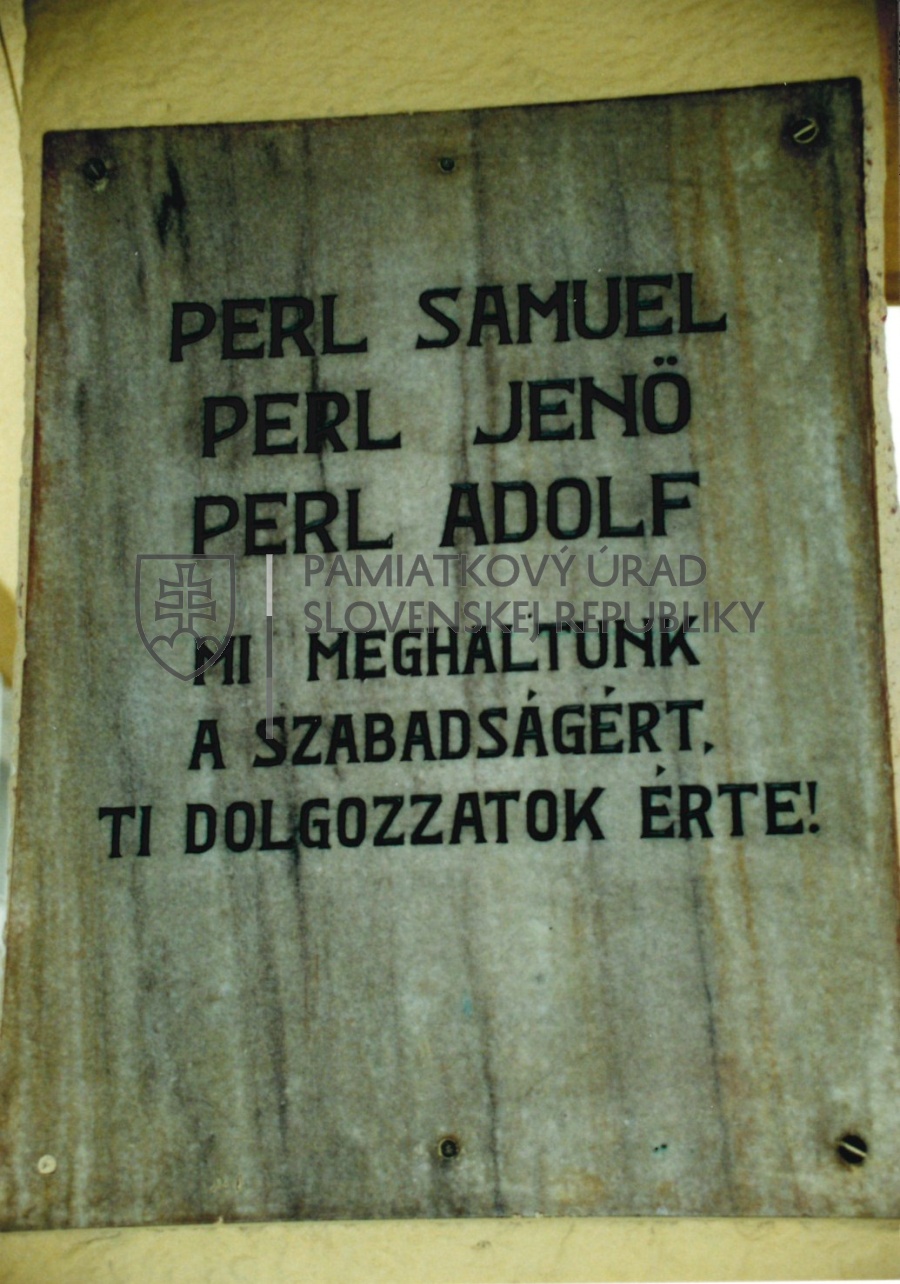 PERL SAMUEL
PERL JENÖ
PERL ADOLF
PAMIATKOVÝ ÚRAD
SLOVENSKEJ REPUBLIKY
MI MEGHALTUNK
A SZABADSÁGÉRT,
TI DOLGOZZATOK ÉRTE!